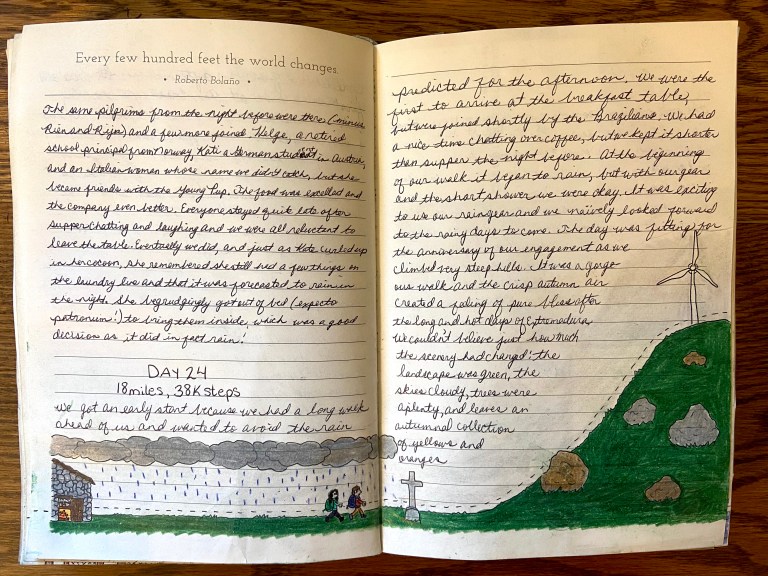 Every few hundred feet the world changes
• Roberto Bolaño •
The same pilgrims from the night before were there (minus
Rien and Rija), and a few more joined. Helge, a retired
school principal from Norway, Kati a German student in Austria,
and an Italian woman whose name we didn't catch, but she
became friends with the Young Pup. The food was excellent and
the company even better. Everyone stayed quite late after
supper chatting and laughing and we were all reluctant to
leave the table. Eventually we did, and just as Kate curled up
in her cocoon, she remembered she still had a few things on
the laundry line and that it was forecasted to rain in
the night. She begrudgingly got out of bed (expecto
patronum!) to bring them inside, which was a good
decision as it did in fact rain!
DAY 24
18 miles, 38K steps
We got an early start because we had a long walk
ahead of us and wanted to avoid the rain
predicted for the afternoon. We were the
first to arrive at the breakfast table,
but were joined shortly by the Brazilians. We had
a nice time chatting over coffee, but we kept it shorter
than supper the night before. At the beginning
of our walk it began to rain, but with our gear
and the short shower we were okay. It was exciting
to use our rain gear and we naïvely looked forward
to the rainy days to come. The day was fitting for
the anniversary of our engagement as we
climbed very steep hills. It was a gorge
ous walk and the crisp autumn air
created a feeling of pure bliss after
the long and hot days of Extremedura.
We couldn't believe just how much
the scenery had changed: the
landscape was green, the
skies cloudy, trees were
aplenty, and leaves an
autumnal collection
of yellows and
oranges